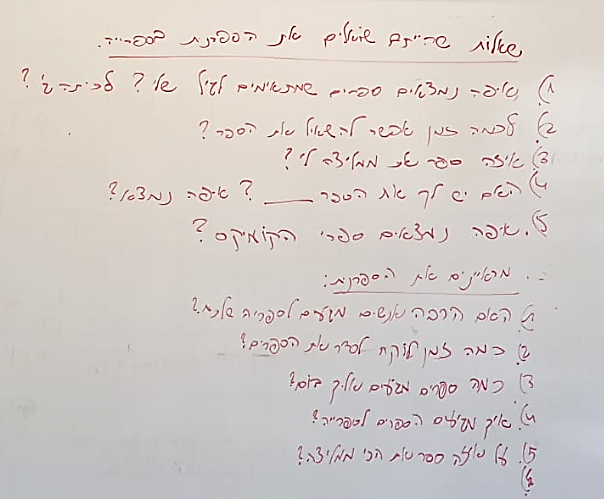 שאלות שהייתם שואלים את הספרנית בספרייה.
1) איפה נמצאים ספרים שמתאימים לגיל שלי? לכיתה ג'?
2) לכמה זמן אפשר להשאיל את הספר?
3) איזה ספר את ממליצה לי?
4) האם יש לך את הספר ____? איפה נמצא?
5. איפה נמצאים ספרי הקומיקס?
מראיינים את הספרנית:
1) האם הרבה אנשים מגיעים לספריה שלנו?
2) כמה זמן לוקח לסדר את הספרים?
3) כמה ספרים מגיעים אליך ביום?
4). איך מגיעים הספרים לספרייה?
5). על איזה ספר את הכי ממליצה?
6)